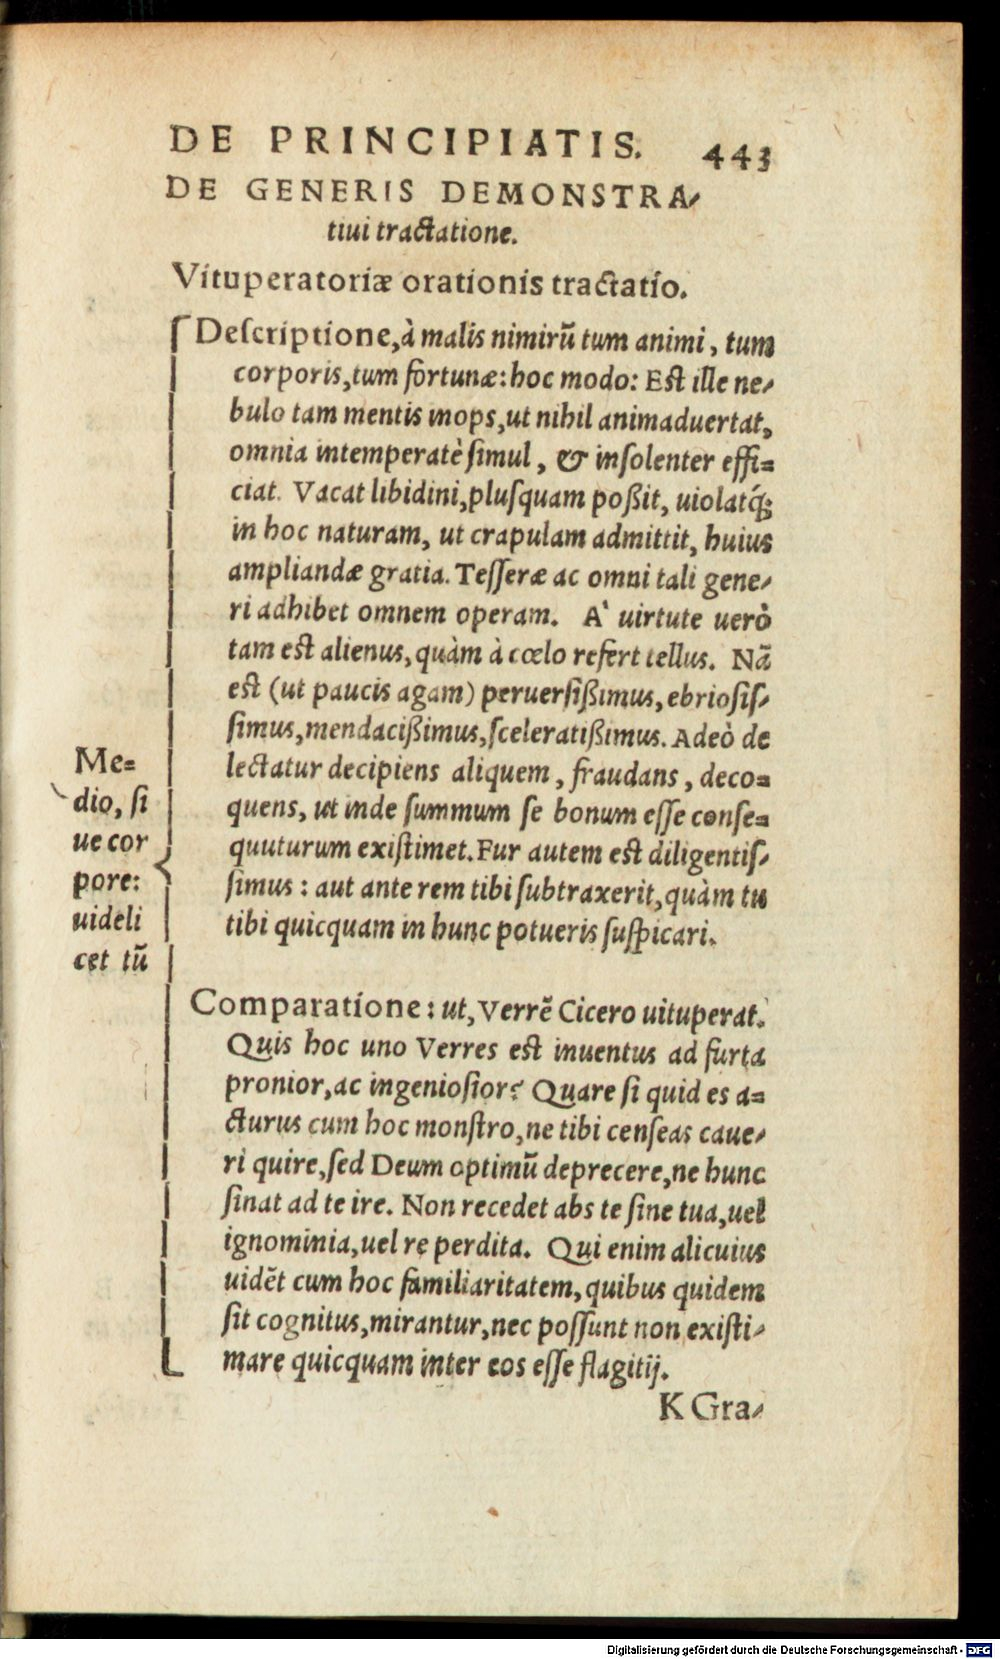 DE PRINCIPIATIS. 443
DE GENERIS DEMONSTRA-
tiui tractatione.
Vituperatoriæ orationis tractatio.
Me=
dio, ſi
ue cor
pore:
uideli
cet tũ
Deſcriptione, à malis nimirũ tum animi, tum
corporis, tum fortunæ: hoc modo: Eſt ille ne-
bulo tam mentis inops, ut nihil animaduertat,
omnia intemperatè ſimul, & inſolenter effi=
ciat. Vacat libidini, pluſquam poßit, uiolatq́;
in hoc naturam, ut crapulam admittit, huius
ampliandæ gratia. Teſſeræ ac omni tali gene-
ri adhibet omnem operam. A' uirtute uerò
tam eſt alienus, quàm à cœlo refert tellus. Nã
eſt (ut paucis agam) peruerſißimus, ebrioſiſ-
ſimus, mendacißimus, ſceleratißimus. Adeò de
lectatur decipiens aliquem, fraudans, deco=
quens, ut inde ſummum ſe bonum eſſe conſe=
quuturum exiſtimet. Fur autem eſt diligentiſ-
ſimus: aut ante rem tibi ſubtraxerit, quàm tu
tibi quicquam in hunc potueris ſuſpicari.
Comparatione: ut, Verrẽ Cicero uituperat.
Quis hoc uno Verres eſt inuentus ad furta
pronior, ac ingenioſior? Quare ſi quid es a=
cturus cum hoc monſtro, ne tibi cenſeas caue-
ri quire, ſed Deum optimũ deprecere, ne hunc
ſinat ad te ire. Non recedet abs te ſine tua, uel
ignominia, uel re perdita. Qui enim alicuius
uidẽt cum hoc familiaritatem, quibus quidem
ſit cognitus, mirantur, nec poſſunt non exiſti-
mare quicquam inter eos eſſe flagitij.
K Gra-
Digitalisierung gefördert durch die Deutsche Forschungsgemeinschaft - DFG